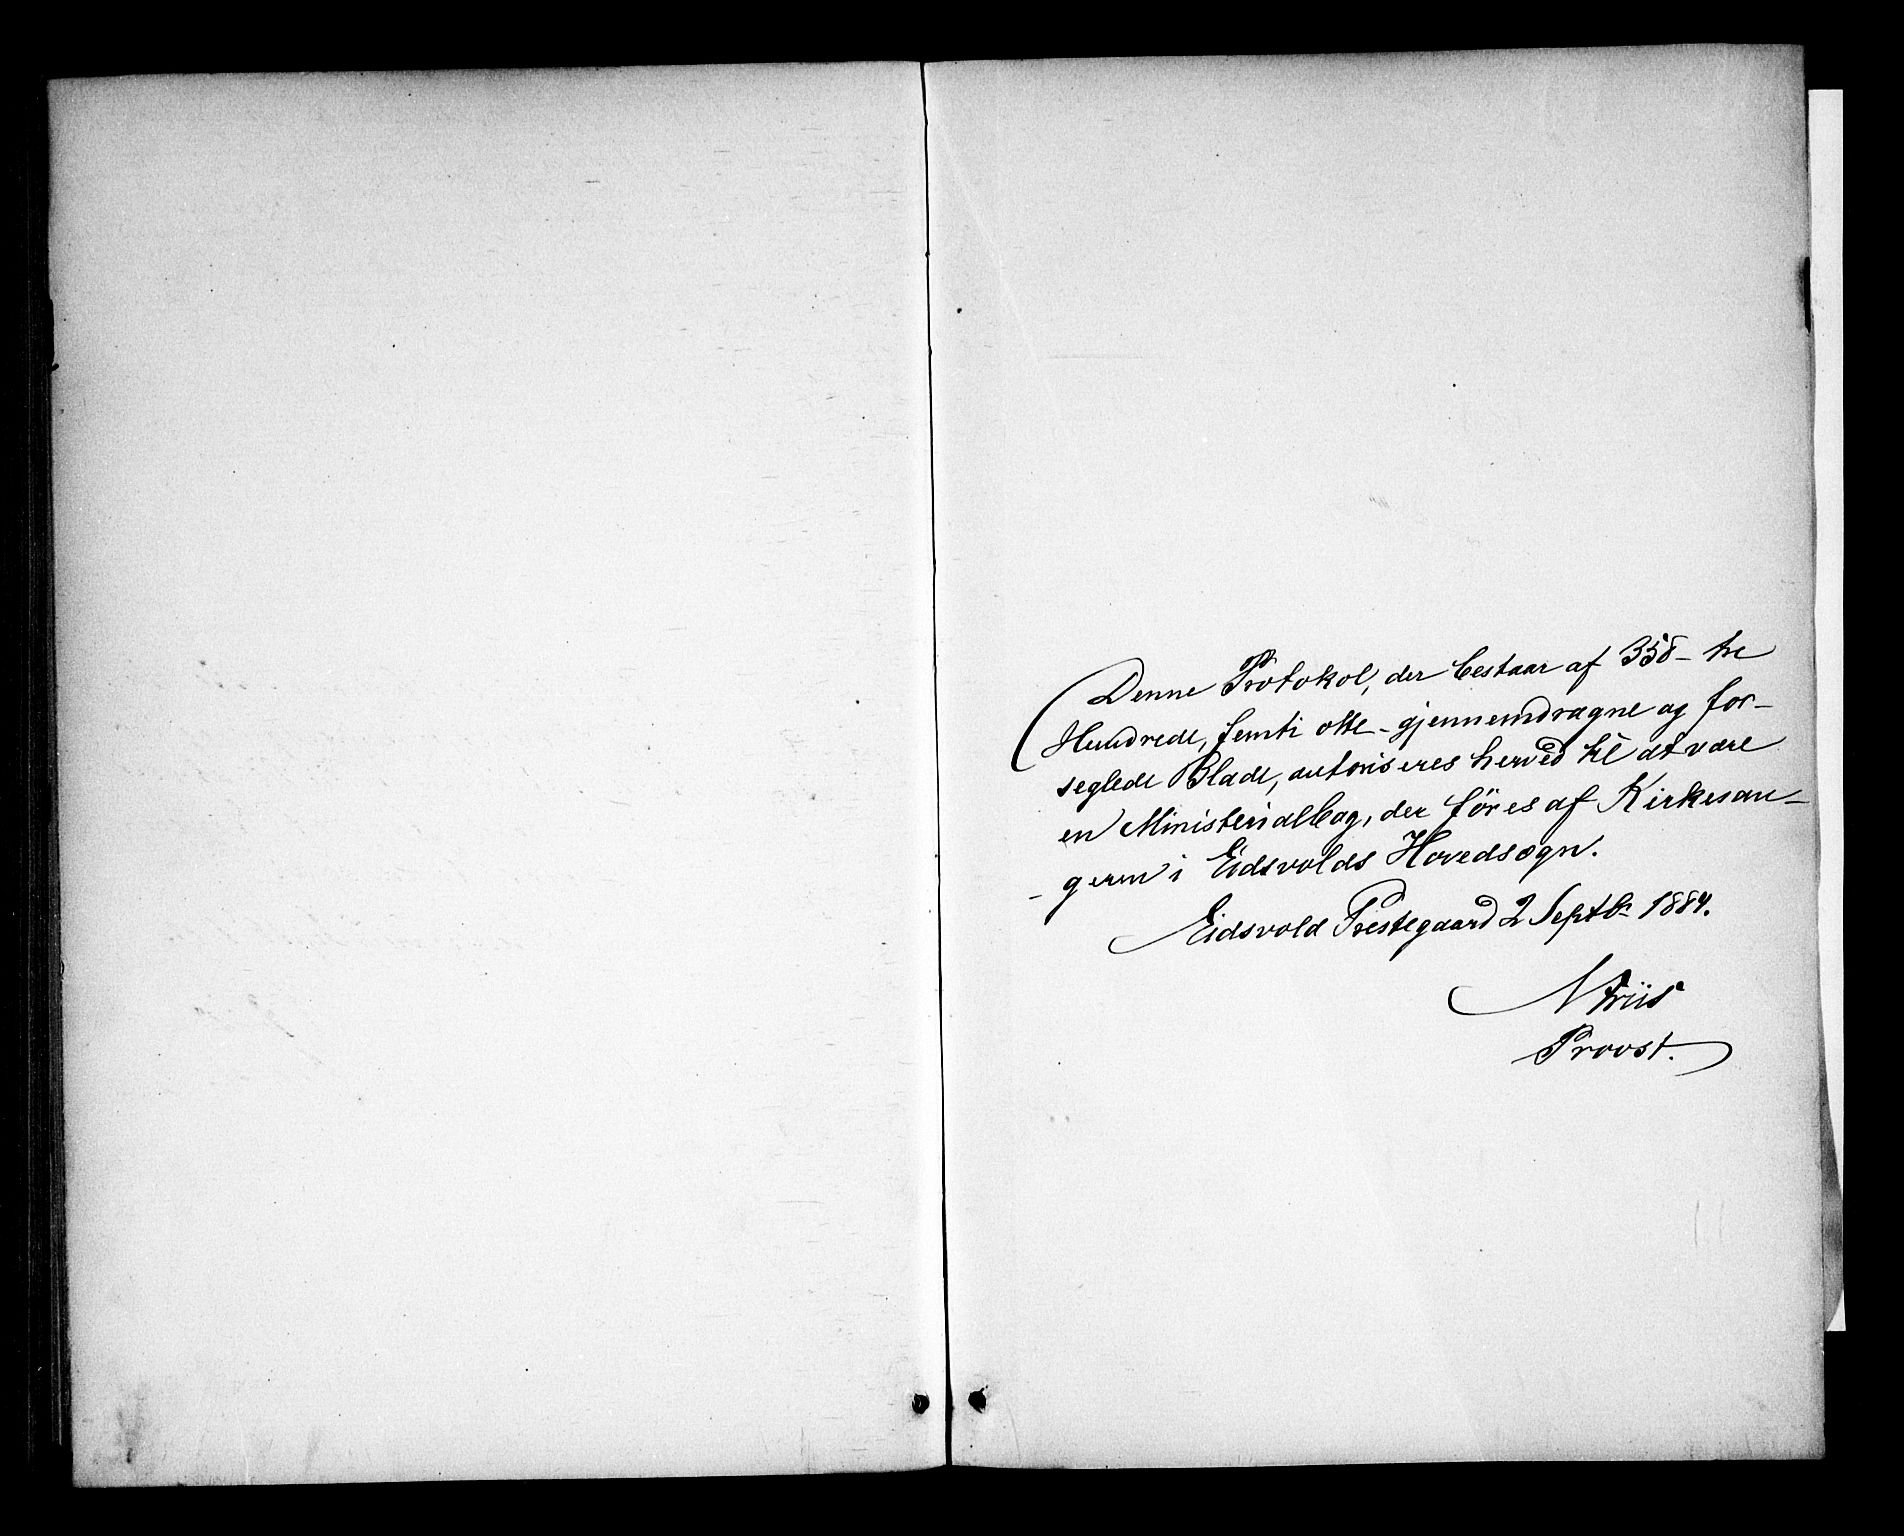 Denne Protokol, der bestaar af 358 - tre
Hundrede, femti otte - gjennemdragne og for-
seglede Blade, autoriseres herved til at være
en Ministerialbog, der føres af Kirkesan-
- geren i Eidsvolds Hovedsogn.
Eidsvold Prestegaard 2 Septbr 1884.
N Friis
Provst.